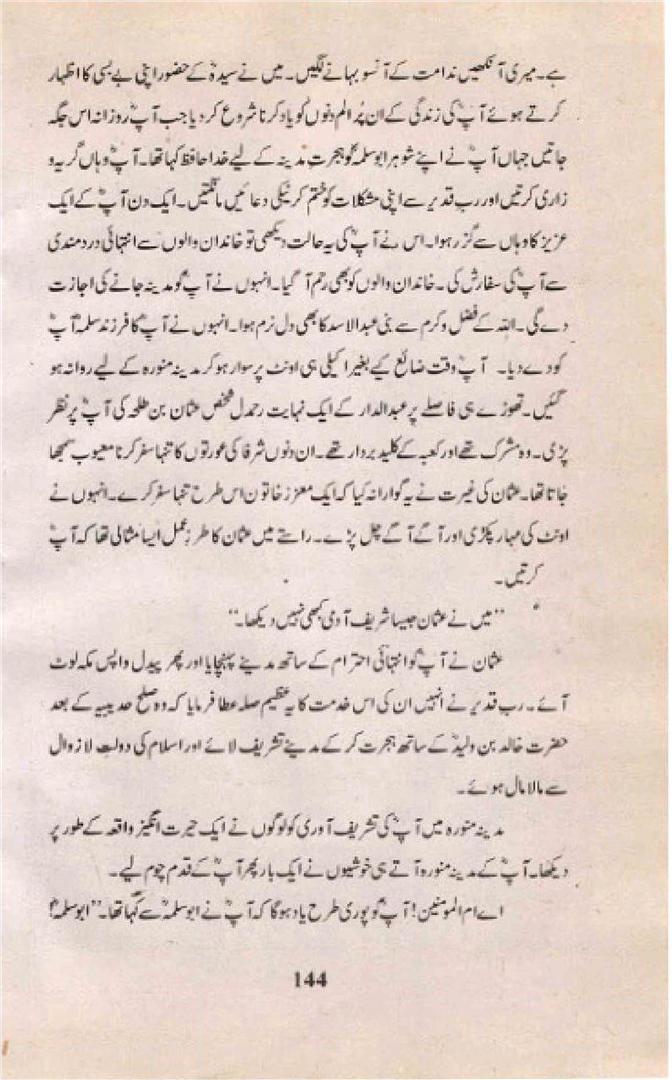 ہے۔ میری آنکھیں ندامت کے آنسو بہانے لگیں۔ میں نے سیدہؓ کے حضور اپنی بے بسی کا اظہار
کرتے ہوئے آپؓ کی زندگی کے ان پُر الم دنوں کو یاد کرنا شروع کر دیا جب آپؓ روزانہ اس جگہ
جاتیں جہاں آپؓ نے اپنے شوہر ابوسلمہؓ کو ہجرتِ مدینہ کے لیے خدا حافظ کہا تھا۔ آپؓ وہاں گریہ و
زاری کرتیں اور رب قدیر سے اپنی مشکلات کو ختم کرنیکی دعائیں مانگتیں۔ ایک دن آپؓ کے ایک
عزیز کا وہاں سے گزر ہوا۔ اس نے آپؓ کی یہ حالت دیکھی تو خاندان والوں سے انتہائی دردمندی
سے آپؓ کی سفارش کی۔ خاندان والوں کو بھی رحم آ گیا۔ انہوں نے آپؓ کو مدینہ جانے کی اجازت
دے گی۔ اللہ کے فضل و کرم سے بنی عبدالاسد کا بھی دل نرم ہوا۔ انہوں نے آپؓ کا فرزند سلمہؓ آپؓ
کو دے دیا۔ آپؓ وقت ضائع کیے بغیر اکیلی ہی اونٹ پر سوار ہو کر مدینہ منورہ کے لیے روانہ ہو
گئیں۔ تھوڑے ہی فاصلے پر عبدالدار کے ایک نہایت رحمدل شخص عثمان بن طلحہ کی آپؓ پر نظر
پڑی۔ وہ مشرک تھے اور کعبہ کے کلید بردار تھے۔ ان دنوں شرفا کی عورتوں کا تنہا سفر کرنا معیوب سمجھا
جاتا تھا۔ عثمان کی غیرت نے یہ گوارا نہ کیا کہ ایک معزز خاتون اس طرح تنہا سفر کرے۔ انہوں نے
اونٹ کی مہار پکڑی اور آگے آگے چل پڑے۔ راستے میں عثمان کا طرزِ عمل ایسا مثالی تھا کہ آپؓ
کرتیں۔
’’میں نے عثمان جیسا شریف آدمی کبھی نہیں دیکھا۔‘‘
عثمان نے آپؓ کو انتہائی احترام کے ساتھ مدینے پہنچایا اور پھر پیدل واپس مکہ لوٹ
آئے۔ رب قدیر نے انہیں ان کی اس خدمت کا یہ عظیم صلہ عطا فرمایا کہ وہ صلح حدیبیہ کے بعد
حضرت خالد بن ولیدؓ کے ساتھ ہجرت کر کے مدینے تشریف لائے اور اسلام کی دولتِ لازوال
سے مالا مال ہوئے۔
مدینہ منورہ میں آپؓ کی تشریف آوری کو لوگوں نے ایک حیرت انگیز واقعہ کے طور پر
دیکھا۔ آپؓ کے مدینہ منورہ آتے ہی خوشیوں نے ایک بار پھر آپؓ کے قدم چوم لیے۔
اے ام المومنین! آپؓ کو پوری طرح یاد ہوگا کہ آپؓ نے ابوسلمہؓ سے کہا تھا۔ ’’ابوسلمہؓ!
144